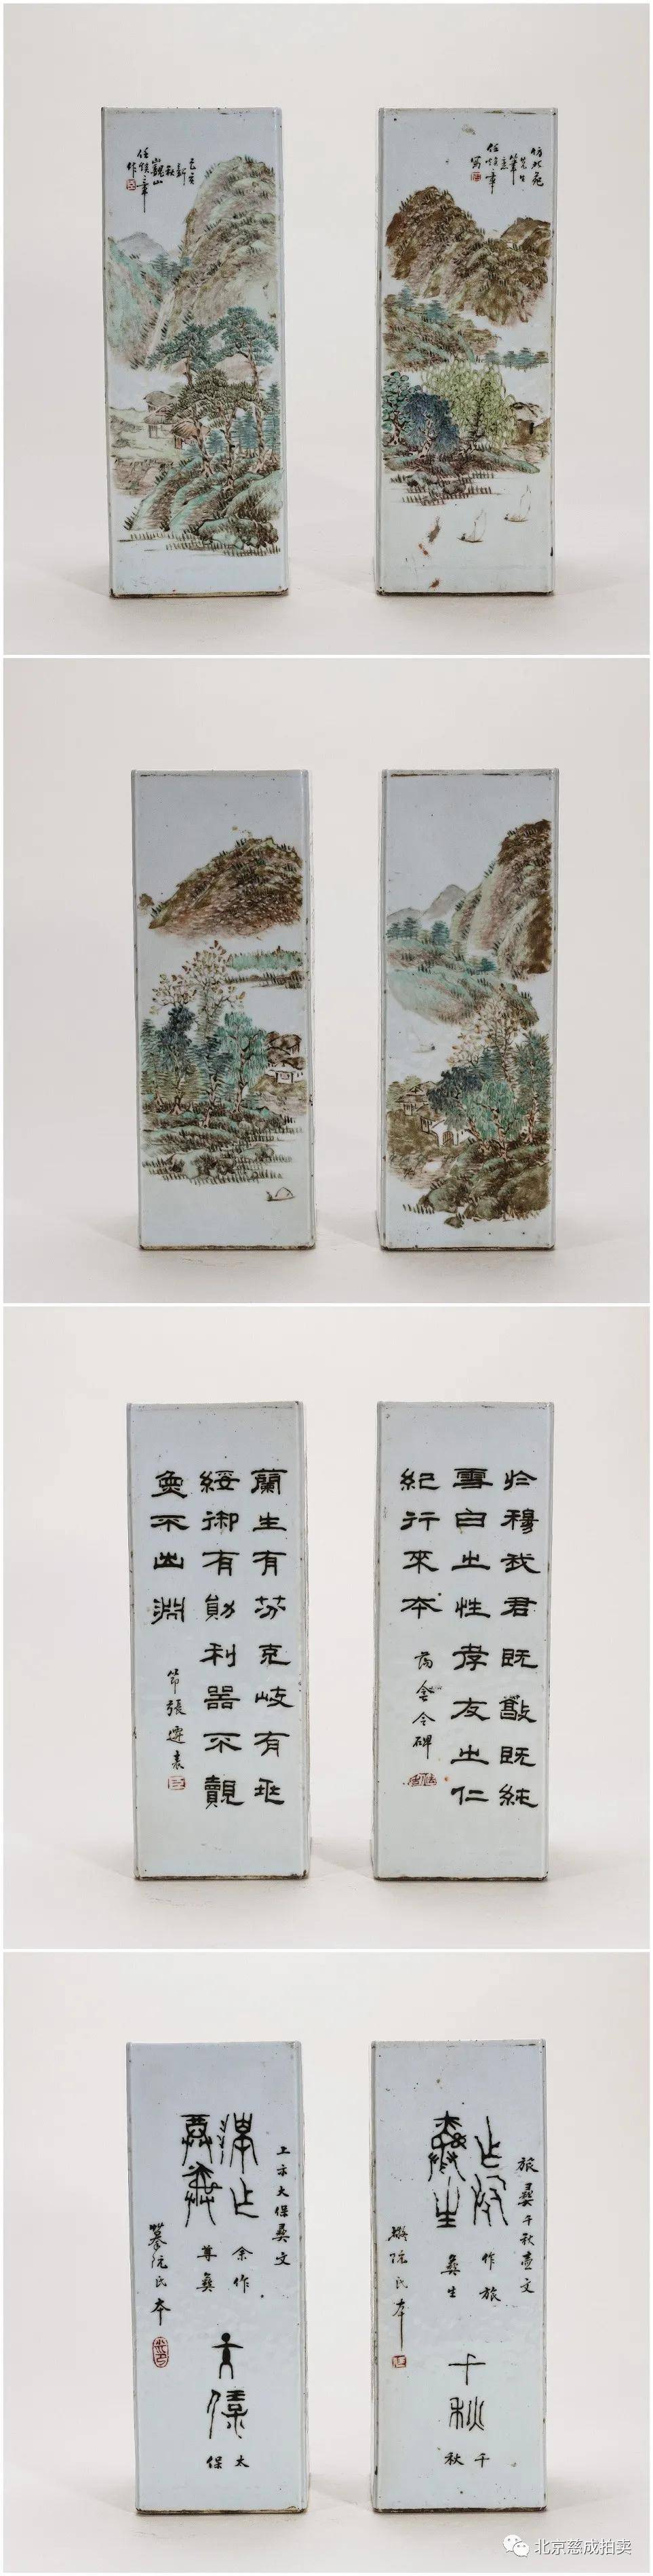 新秋
觀山
任煥章
作
仿北苑
先生
筆意
任煥章
寫
蘭生有芬克岐有兆
綏御有勛利器不覿
魚不出淵
節張遷表
於穆我君既敦既純
雪白之性孝友之仁
紀行來本
蕩陰令碑
上古太保彝文
余作
尊彝
摹阮氏本
太
保
旅彝千秋壺文
作旅
彝生
擬阮氏本
千
秋
北京慈成拍卖